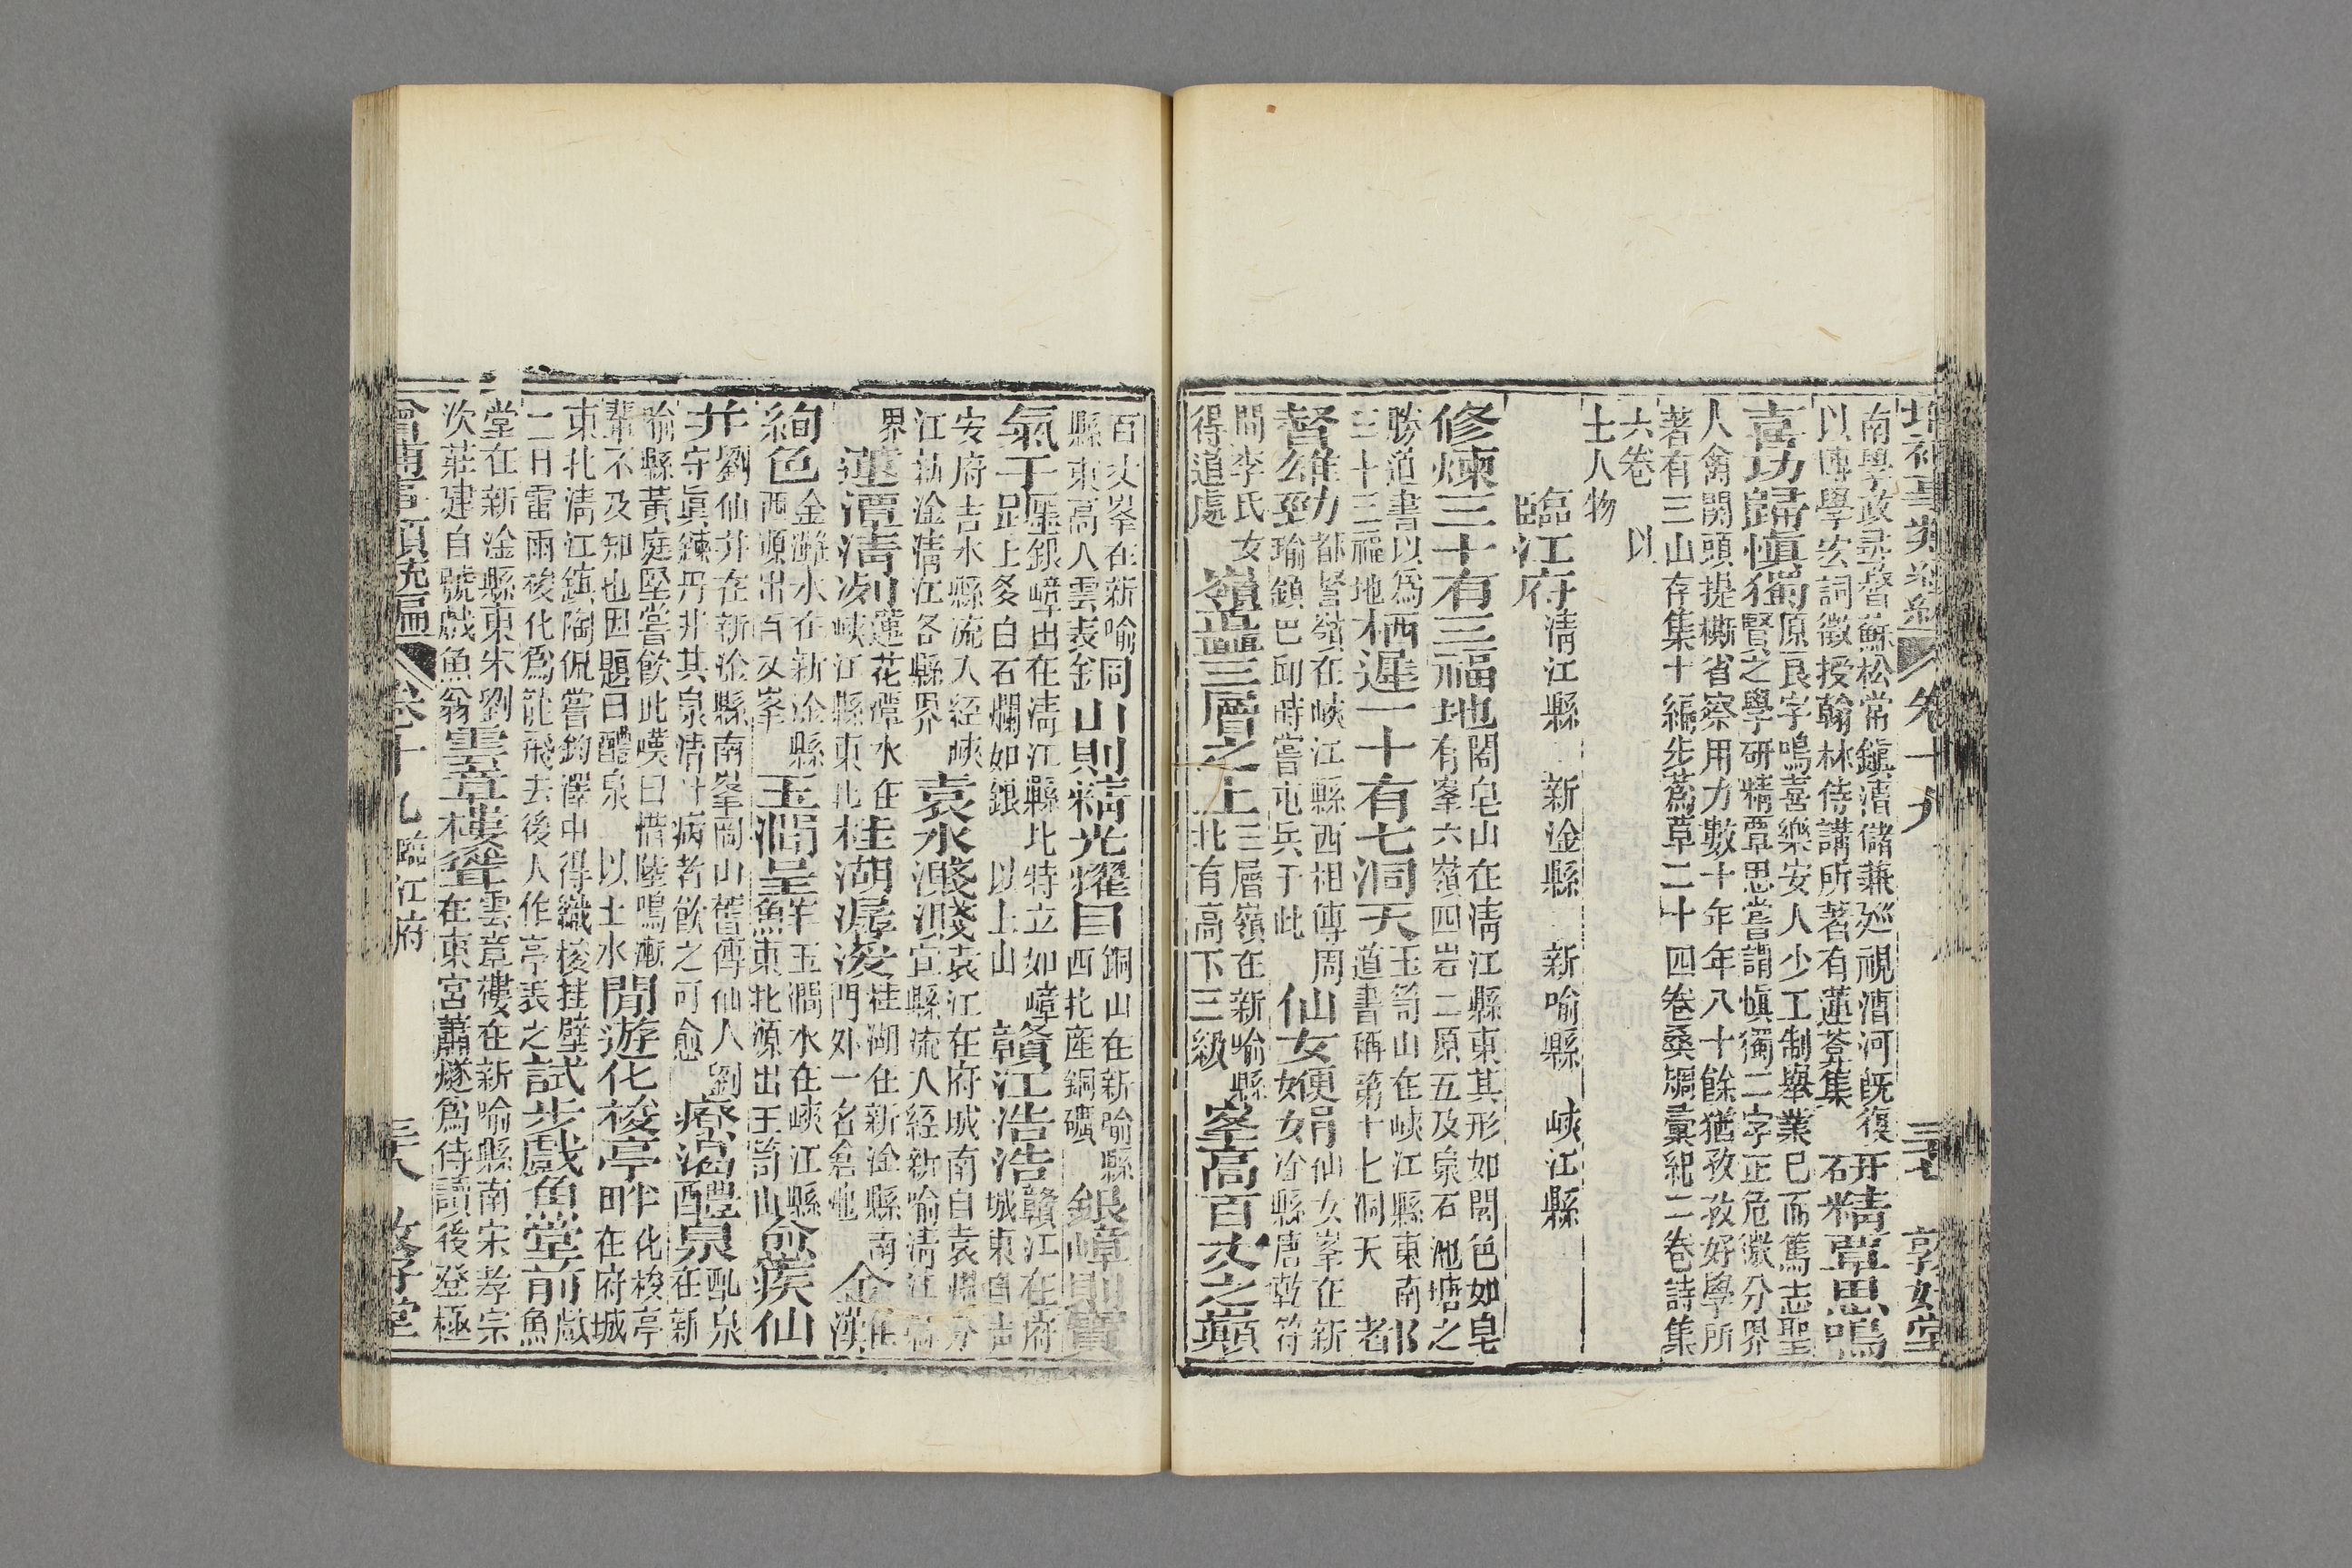 南學政尋督蘇松常鎮漕儲兼廵視漕河旣復
以博學宏詞徵授翰林侍講所著有蓮菴集
研精覃思鳴
喜功歸愼獨
原良字鳴喜樂安人少工制舉業巳而篤志聖
賢之學研精覃思嘗謂愼獨二字正危微分界
人禽關頭提撕省察用力數十年年八十餘猶孜孜好學所
著有三山存集十編步蔿草二十四卷桑
彙紀二卷詩集
六卷
以
士人物
臨江府
清江縣 新淦縣 新喻縣 峽江縣
修煉三十有三福地
閤皂山在清江縣東其形如閤色如皂
有峯六嶺四岩二原五及泉石池塘之
勝道書以為
三十三福地
栖遲一十有七洞天
玉笥山在峽江縣東南
道書稱第十七洞天
都
者
督雄勁
公
都督嶺在峽江縣西相傳周
瑜鎮巴邱時嘗屯兵于此
仙女便娟
仙女峯在新
淦縣唐乾符
間李氏女
得道處
嶺矗三層之上
三層嶺在新喻縣
北有高下三級
峯高百丈之巔
百丈峯在新喻
縣東高人雲表
同山則精光耀目
銅山在新喻縣
西北產銅礦
銀嶂則寶
氣干雲
銀嶂山在清江縣北特立如嶂
趾上多白石爛如銀
以上山
贛江浩浩
贛江在府
城東自吉
安府吉水縣流入經峽
江新淦清江各縣界
袁水濺濺
袁江在府城南自袁州分
宜縣流入經新喻清江
界
蓮潭清冽
蓮花潭水在
峽江縣東北
桂湖潺湲
桂湖在新淦縣南
門外一名倉池
金
絢色
金灘水在新淦縣
西源出百丈峯
玉澗呈鮮
玉澗水在峽江縣
東北源出玉笥山
俞疾仙
井
劉仙井在新淦縣南峯岡山舊傳仙人劉
守眞鍊丹井其泉清甘病者飲之可愈
療渴醴泉
醴泉
在新
喻縣黃庭堅嘗飲此嘆曰惜陸鳴漸
輩不及知也因題曰醴泉
以上水
閒遊化梭亭畔
化梭亭
在府城
東北清江鎮陶侃嘗釣澤中得織梭挂壁
二日雷雨梭化爲龍飛去後人作亭表之
試步戲魚堂前
戲
魚
堂在新淦縣東宋劉
次莊建自號戲魚翁
雲章樓聳
雲章樓在新喻縣南宋孝宗
在東宮蕭燧爲侍讀後登極
卷十九
臨江府
敦好堂